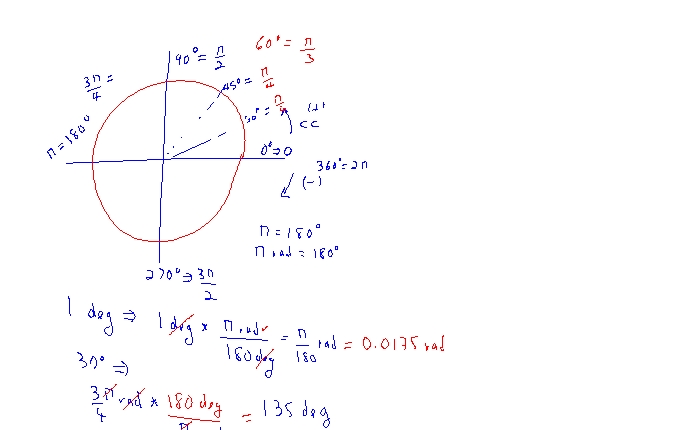 90° = π/2
60° = π/3
3π/4 =
45° = π/4
π = 180°
(+)
cc
0° ⇒ 0
360° = 2π
(-)
π = 180°
π rad = 180°
270° ⇒ 3π/2
1 deg ⇒ 1 deg * π rad / 180 deg = π/180 rad = 0.0175 rad
30° ⇒
3π/4 rad * 180 deg / π = 135 deg